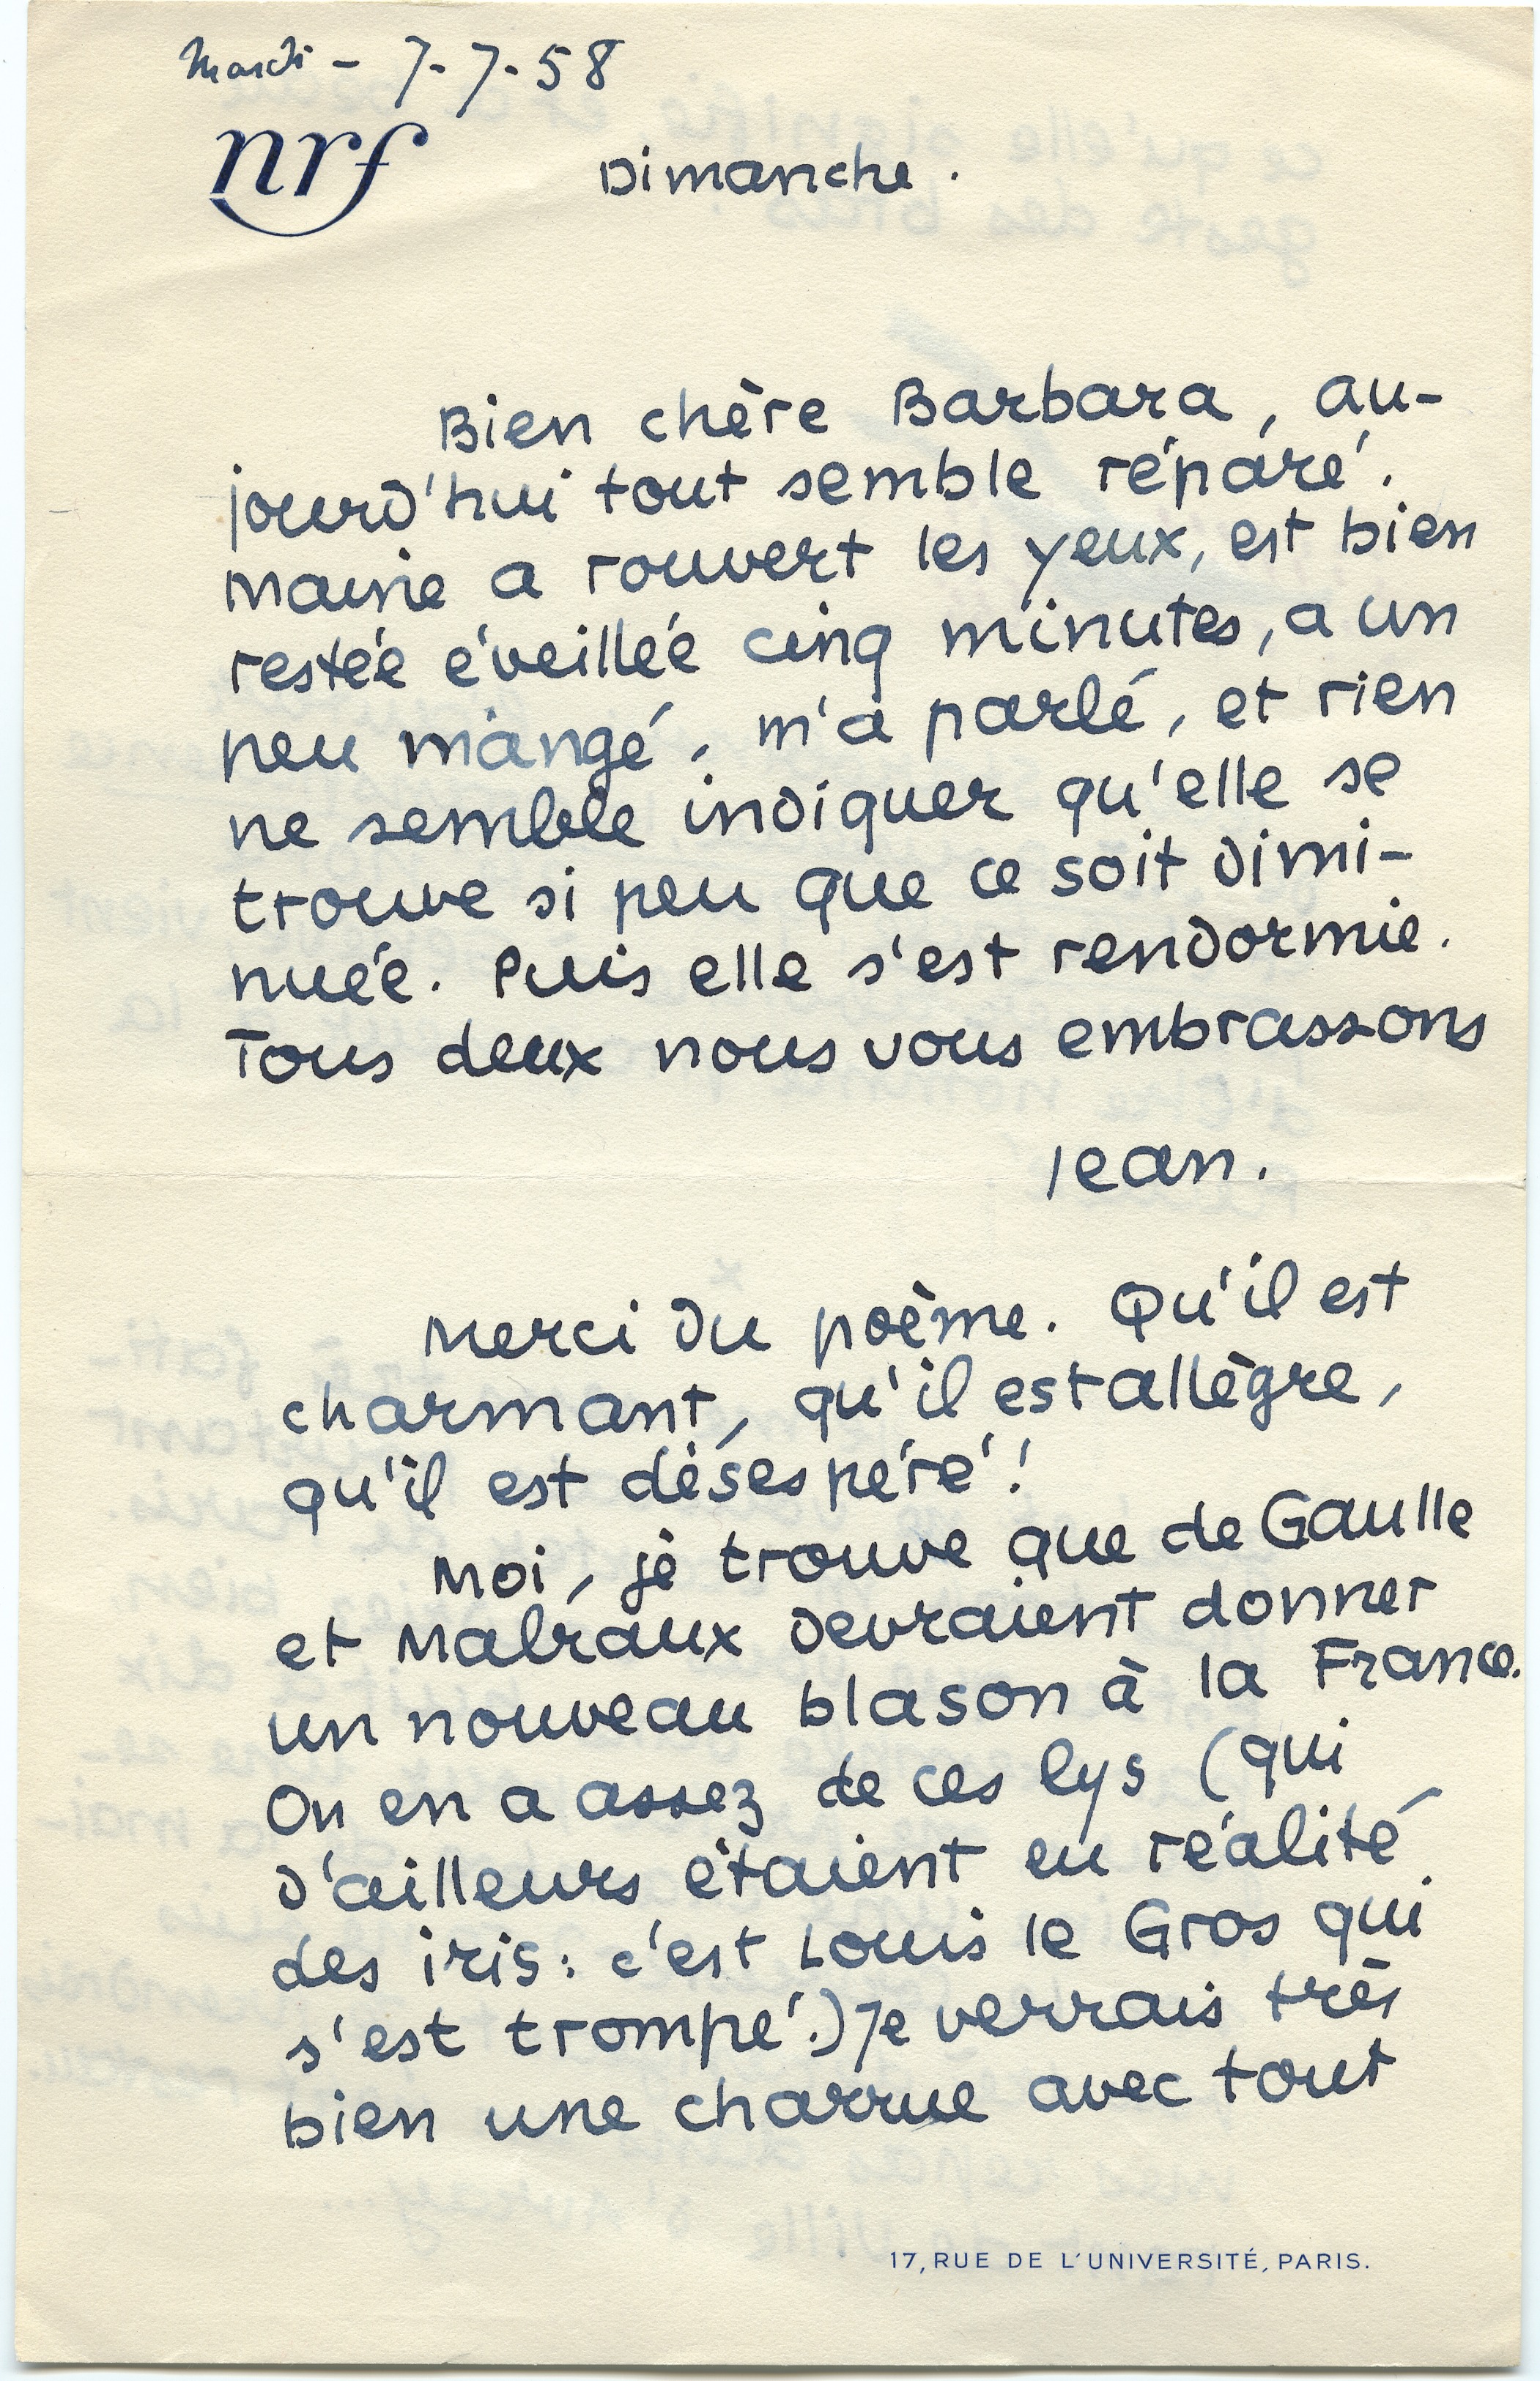 Mardi - 7-7-58
nrf
Dimanche.
Bien chère Barbara, au-
jourd'hui tout semble réparé.
Maine a rouvert les yeux, est bien
restée éveillée cinq minutes, a un
peu mangé, m'a parlé, et rien
ne semble indiquer qu'elle se
trouve si peu que ce soit dimi-
nuée. Puis elle s'est rendormie.
Tous deux nous vous embrassons
Jean.
Merci du poème. Qu'il est
charmant, qu'il est allègre,
qu'il est désespéré!
Moi, je trouve que de Gaulle
et Malraux devraient donner
un nouveau blason à la France.
On en a assez de ces lys (qui
d'ailleurs étaient en réalité
des iris: c'est Louis le Gros qui
s'est trompé.) Je verrais très
bien une charrue avec tout
17, RUE DE L'UNIVERSITÉ, PARIS.